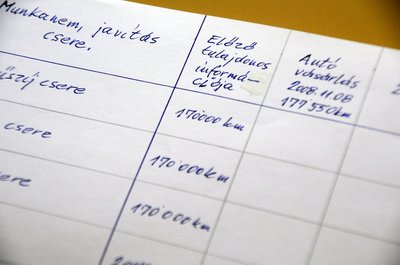 Munkanem, javítás
csere.
Előző
tulajdonos
informá-
ciója
Autó
vásárlás
2008.11.08
177 550 km
csere
170000 km
csere
170 000 km
csere
170 000 km